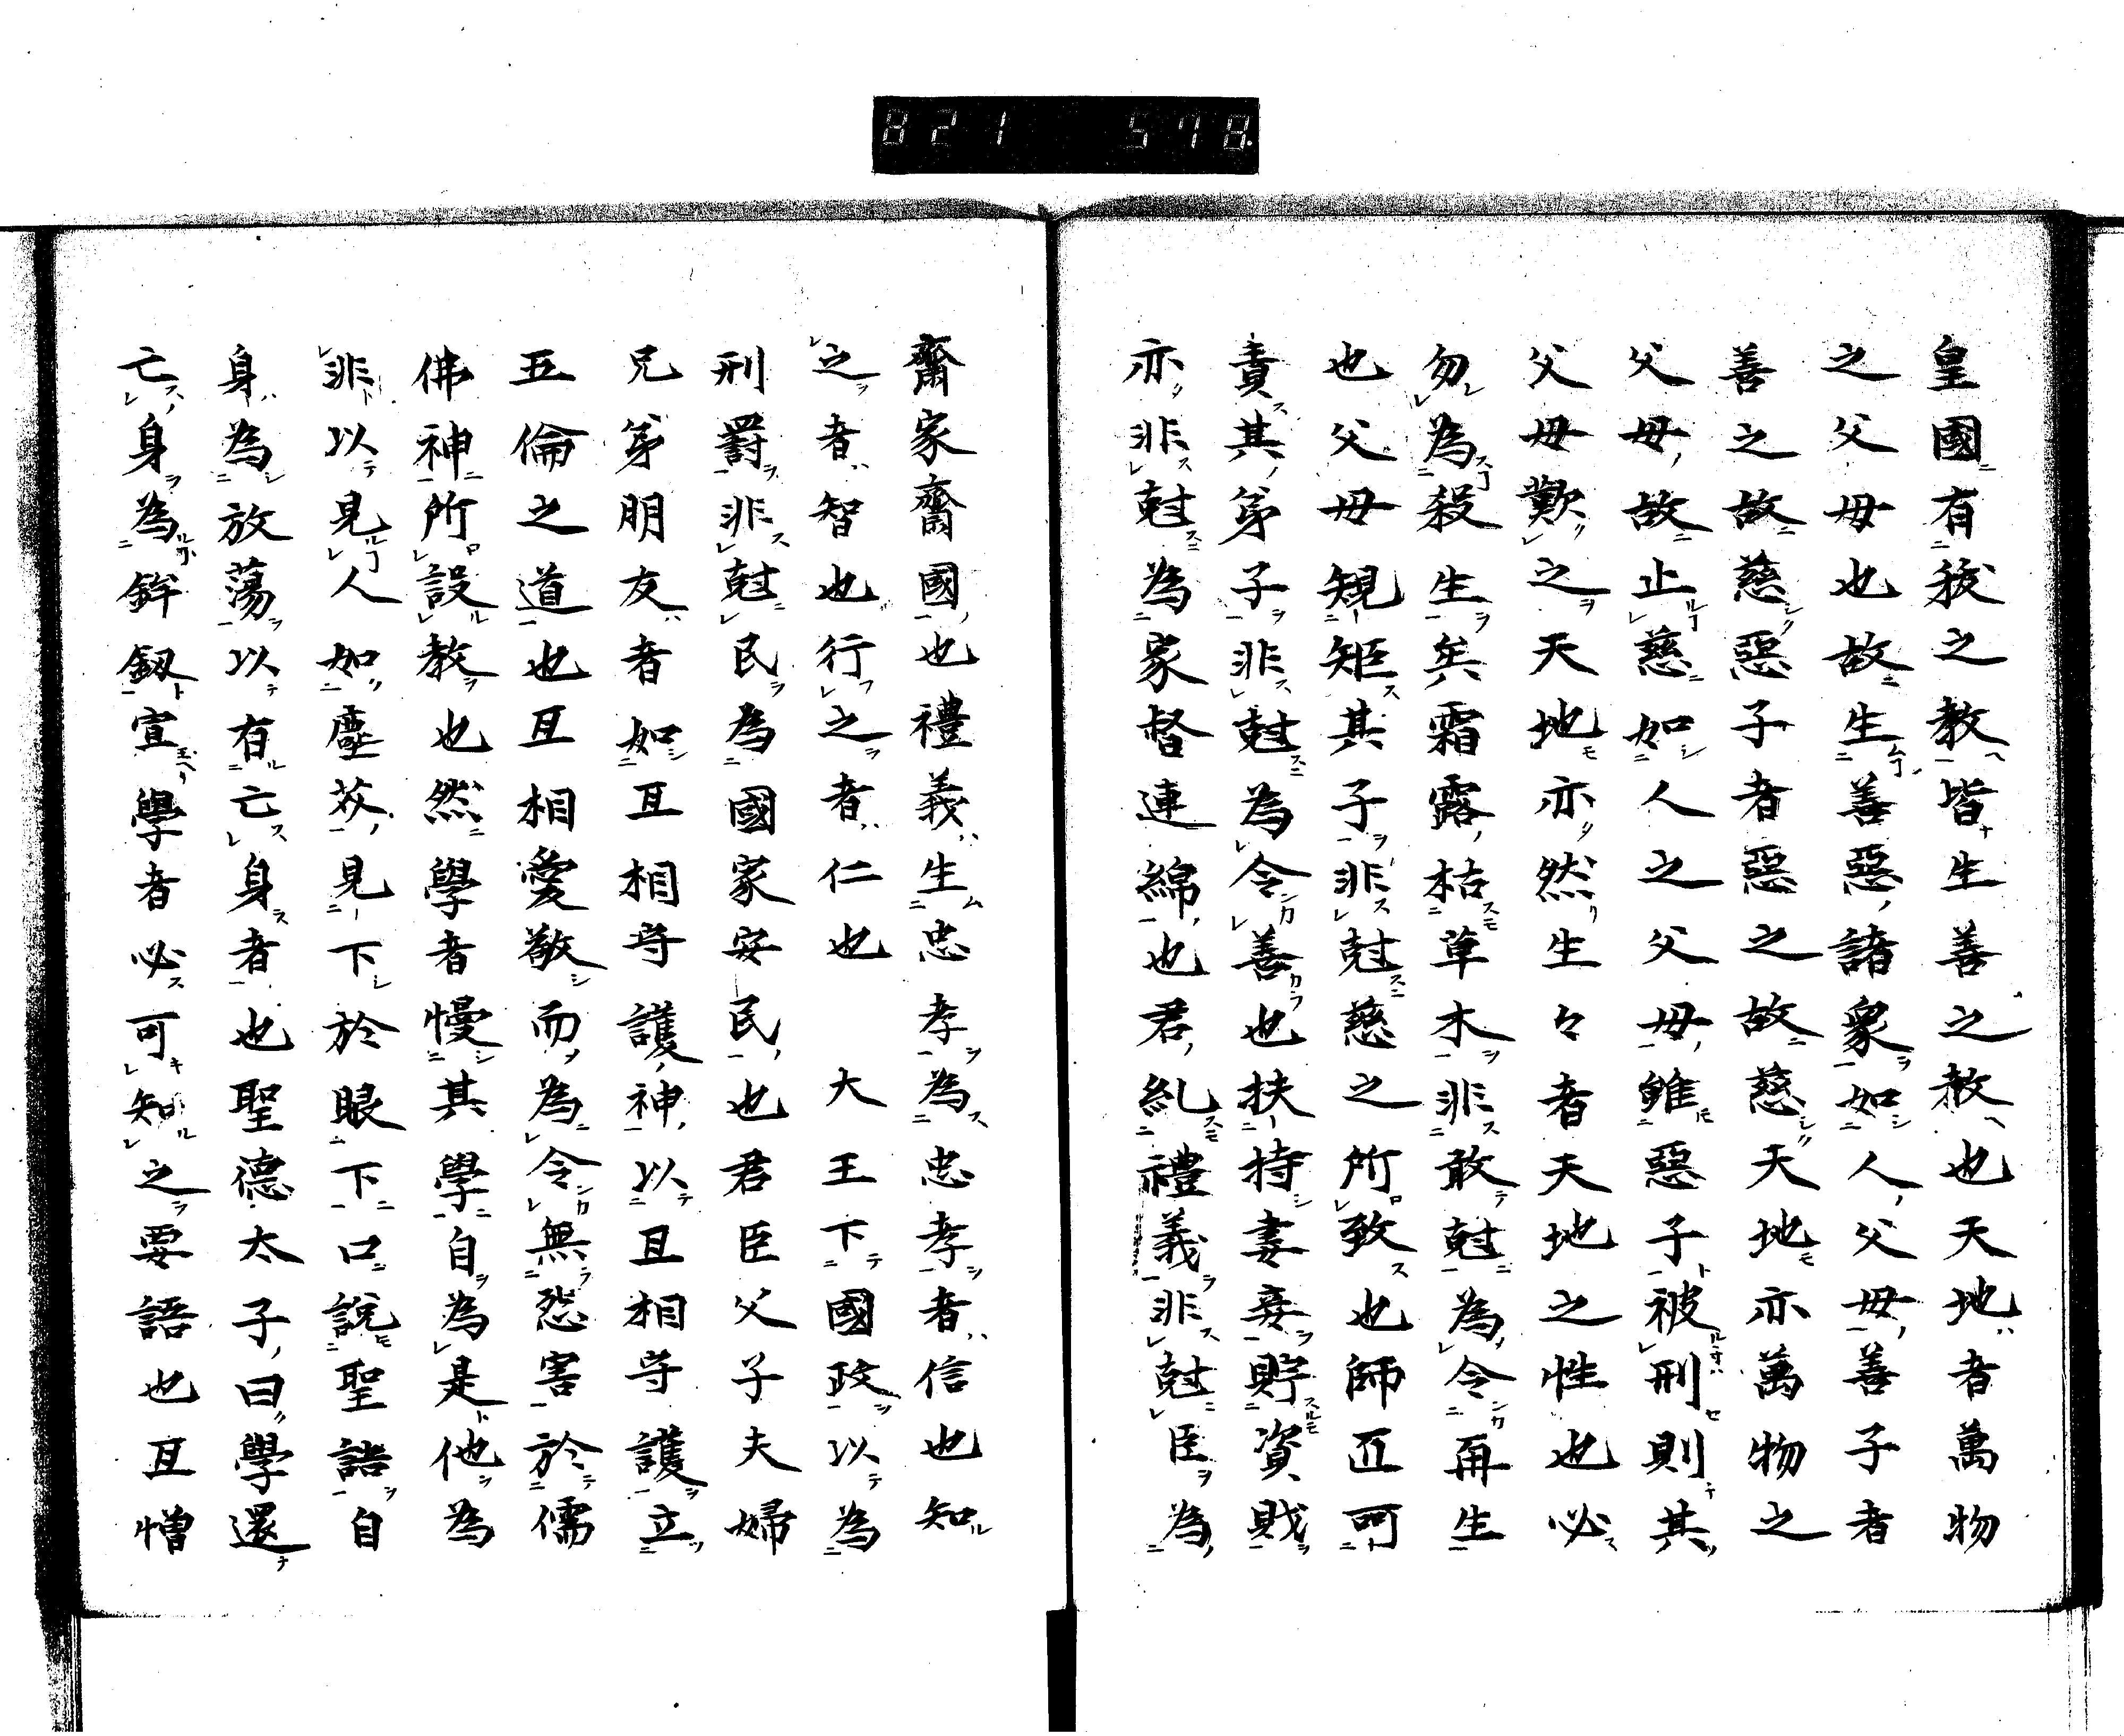 821 578.
皇國有我之教皆生善之教也天地者萬物
之父母也故生善惡諸衆如人父母善子者
善之故慈惡子者惡之故慈天地亦萬物之
父母故止慈如人之父母雖惡子被刑則其
父母歎之天地亦然生々者天地之性也必
勿為殺生矣霜露枯草木非敢尅為令再生
也父母規矩其子非尅慈之所致也師匠呵
責其弟子非尅為令善也扶持妻妾貯資財
亦非尅為家督連綿也君糺禮義非尅臣為
齋家齋國也禮義生忠孝為忠孝者信也知
之者智也行之者仁也大王下國政以為
刑罸非尅民為國家安民也君臣父子夫婦
兄弟朋友者如互相守護神以且相守護立
五倫之道也互相愛敬而為令無怨害於儒
佛神所設教也然學者慢其學自為是他為
非以見人如塵芥見下於眼下口說聖語自
身為放蕩以有亡身者也聖德太子曰學還
亡身為鉾釼宣學者必可知之要語也互憎